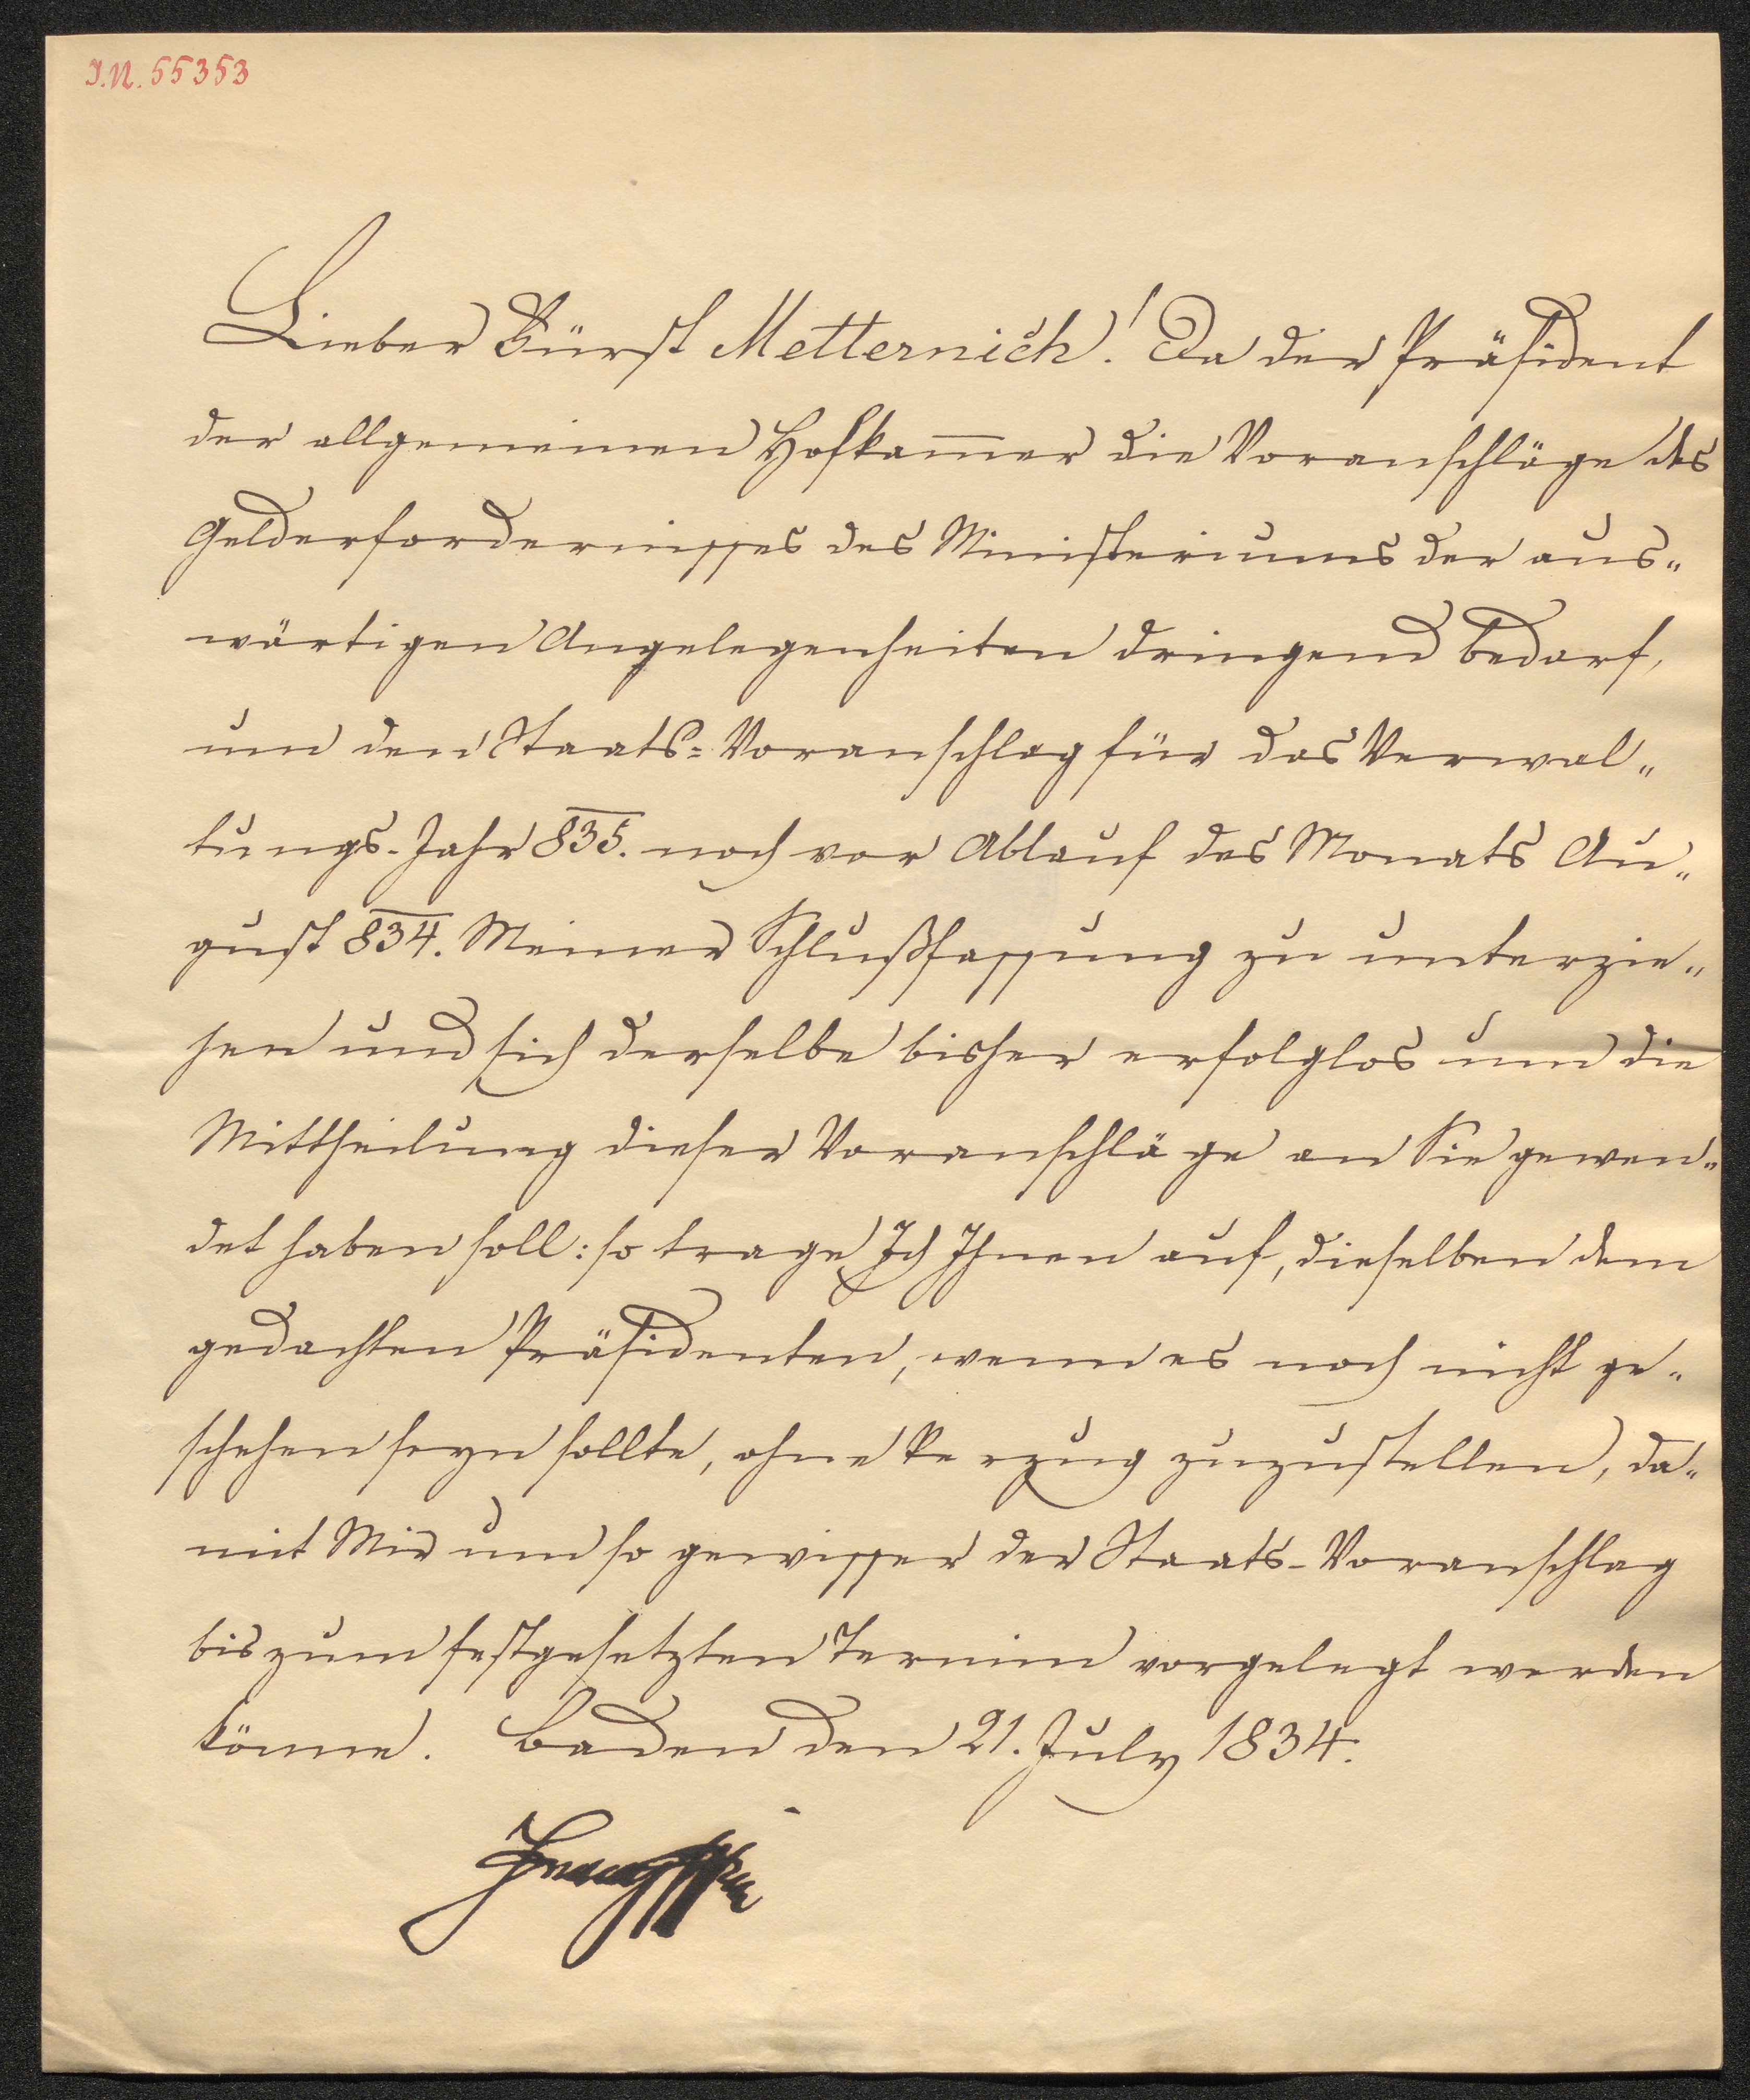 I.N. 55353
Lieber Fürst Metternich! Da der Präsident
der allgemeinen Hofkam̅er die Voranschläge des
Gelderfordernisses des Ministeriums der aus„
wärtigen Angelegenheiten dringend bedarf,
um den Staats=Voranschlag für das Verwal„
tungs-Jahr 835. noch vor Ablauf des Monats Au„
gust 834. Meiner Schlußfassung zu unterzie„
hen und sich derselbe bisher erfolglos um die
Mittheilung dieser Voranschläge an Sie gewen„
det haben soll: so trage Ich Ihnen auf, dieselben dem
gedachten Präsidenten, wenn es noch nicht ge„
schehen seyn sollte, ohne Verzug zuzustellen, da„
mit Mir um so gewisser der Staats-Voranschlag
bis zum festgesetzten Termin vorgelegt werden
könne. Baden den 21. July 1834.
Franz